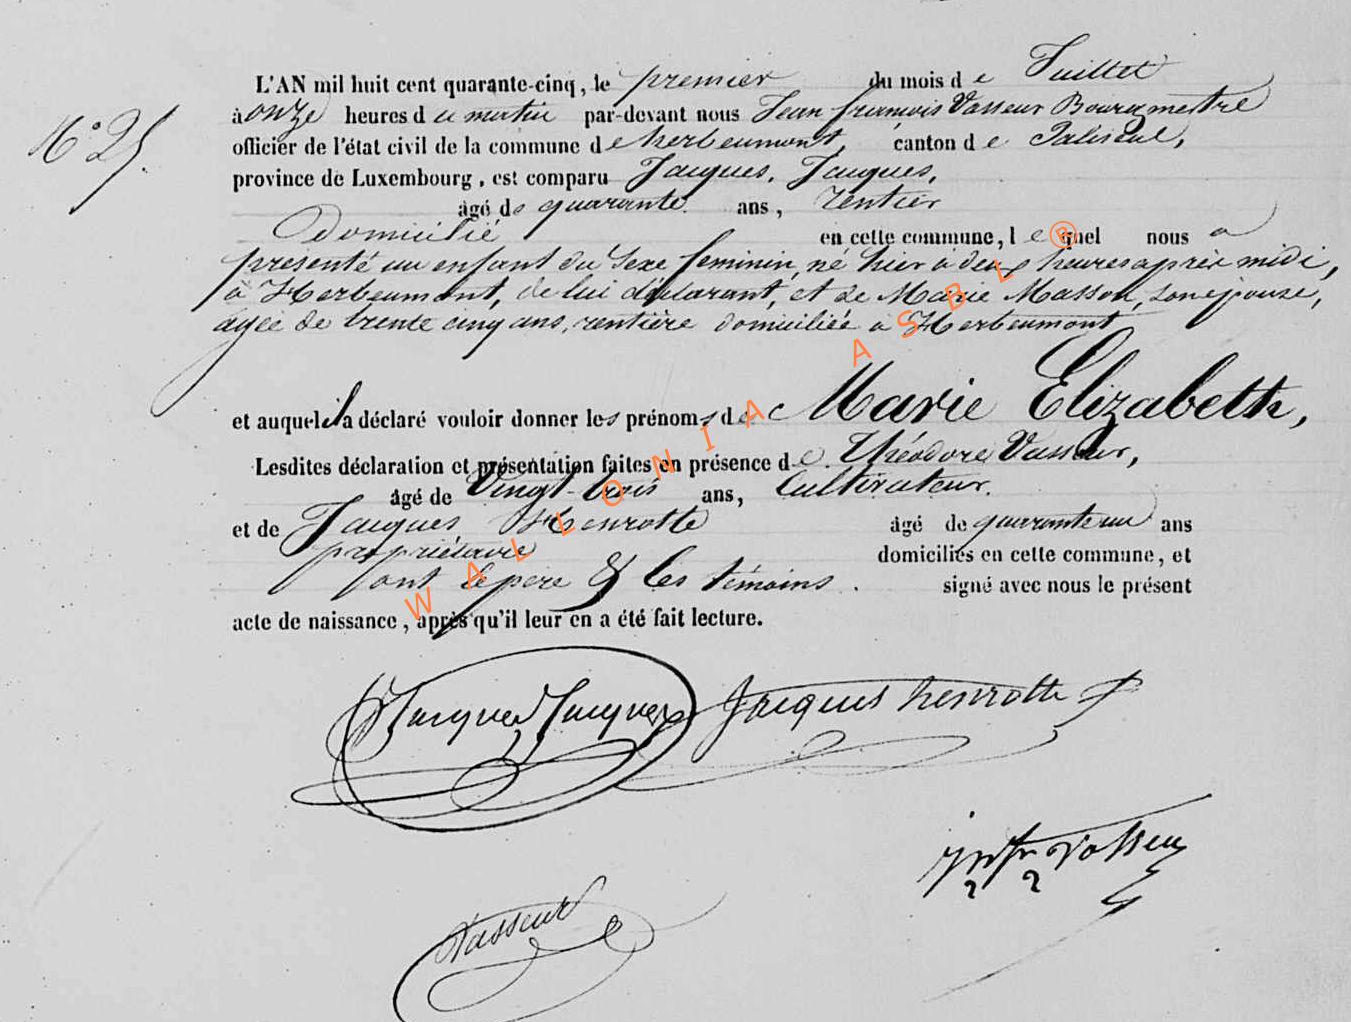 L'AN mil huit cent quarante-cinq, le premier du mois de Juillet
N° 25.
à onze heures du matin par-devant nous Jean françois Vasseur Bourgmestre
officier de l'état civil de la commune de herbeumont, canton de Paliseul,
province de Luxembourg, est comparu Jacques, Jacques,
âgé de quarante ans, rentier
Domicilié en cette commune, lequel nous a
presenté un enfant du sexe feminin, né hier a deux heures après midi,
à Herbeumont, de lui déclarant, et de Marie Masson, son épouse,
agée de trente cinq ans, rentière domiciliée à Herbeumont
et auquel il a déclaré vouloir donner les prénoms de Marie Elizabeth,
Lesdites déclaration et présentation faites en présence de Théodore Vasseur,
âgé de Vingt-trois ans, Cultivateur.
et de Jacques Henrotte âgé de quarante un ans
propriétaire domiciliés en cette commune, et
ont le pere & les témoins. signé avec nous le présent
acte de naissance, après qu'il leur en a été fait lecture.
Jacques Jacques Jacques henrotte
Vasseur
Vasseur
WALLONIA ASBL ®